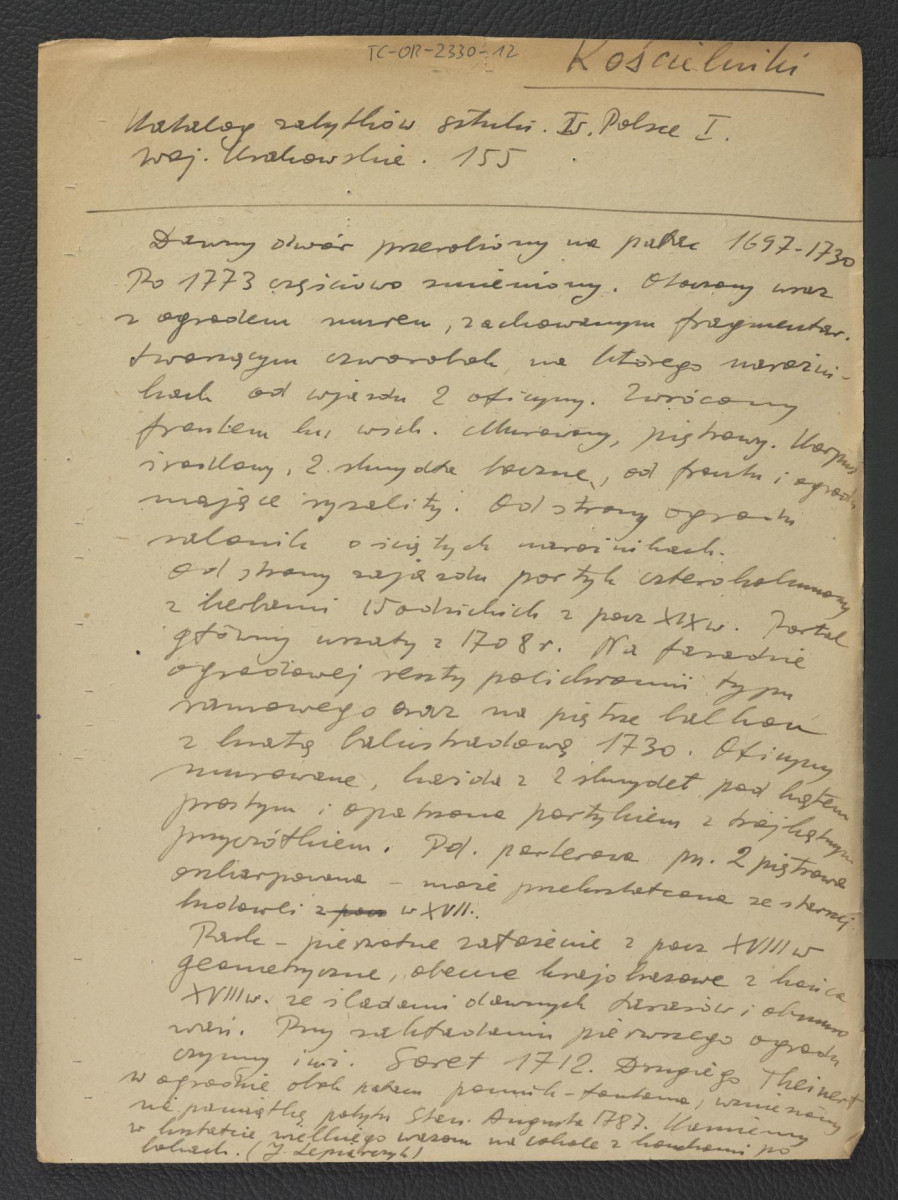 TC-OR-2330-12
Kościelniki
Katalog zabytków sztuki. W. Polsce I.
woj. Krakowskie. 155
Dawny dwór przerobiony na pałac 1697-1730
Po 1773 częściowo zmieniony. Otoczony wraz
z ogrodem murem, zachowanym fragmentar.
tworzącym czworobok, na którego narożni-
kach od wjazdu 2 oficyny. Zwrócony
frontem ku wsch. Murowany, piętrowy. Korpus
środkowy, 2 skrzydła boczne, od frontu i ogrodu
mające ryzality. Od strony ogrodu
salonik o ściętych narożnikach.
Od strony zajazdu portyk czterokolumnowy
z herbami Wodzickich z pocz XIX w. Portal
główny uszaty z 1708 r. Na fasadzie
ogrodowej reszty polichromii typu
ramowego oraz na piętrze balkon
z kratą balustradową 1730. Oficyny
murowane, każda z 2 skrzydeł pod kątem
prostym i opatrzona portykiem z trójkątnym
przyczółkiem. Pd. parterowa pn. 2 piętrowa
oszkarpowana - może przekształcona ze starszej
budowli z pocz w XVII.
Park - pierwotne założenie z pocz XVIII w
geometryczne, obecne krajobrazowe z końca
XVIII w. ze śladami dawnych tarasów i obmuro
wań. Przy zakładaniu pierwszego ogrodu
czynny inż. Soret 1712. Drugiego Theinert
w ogrodzie obok pałacu pomnik-fontanna, wzniesiony
na pamiątkę pobytu Stan. Augusta 1787. Kamienny
w kształcie wielkiego wazonu na cokole z konchami po
bokach. (J. Lepiarczyk)